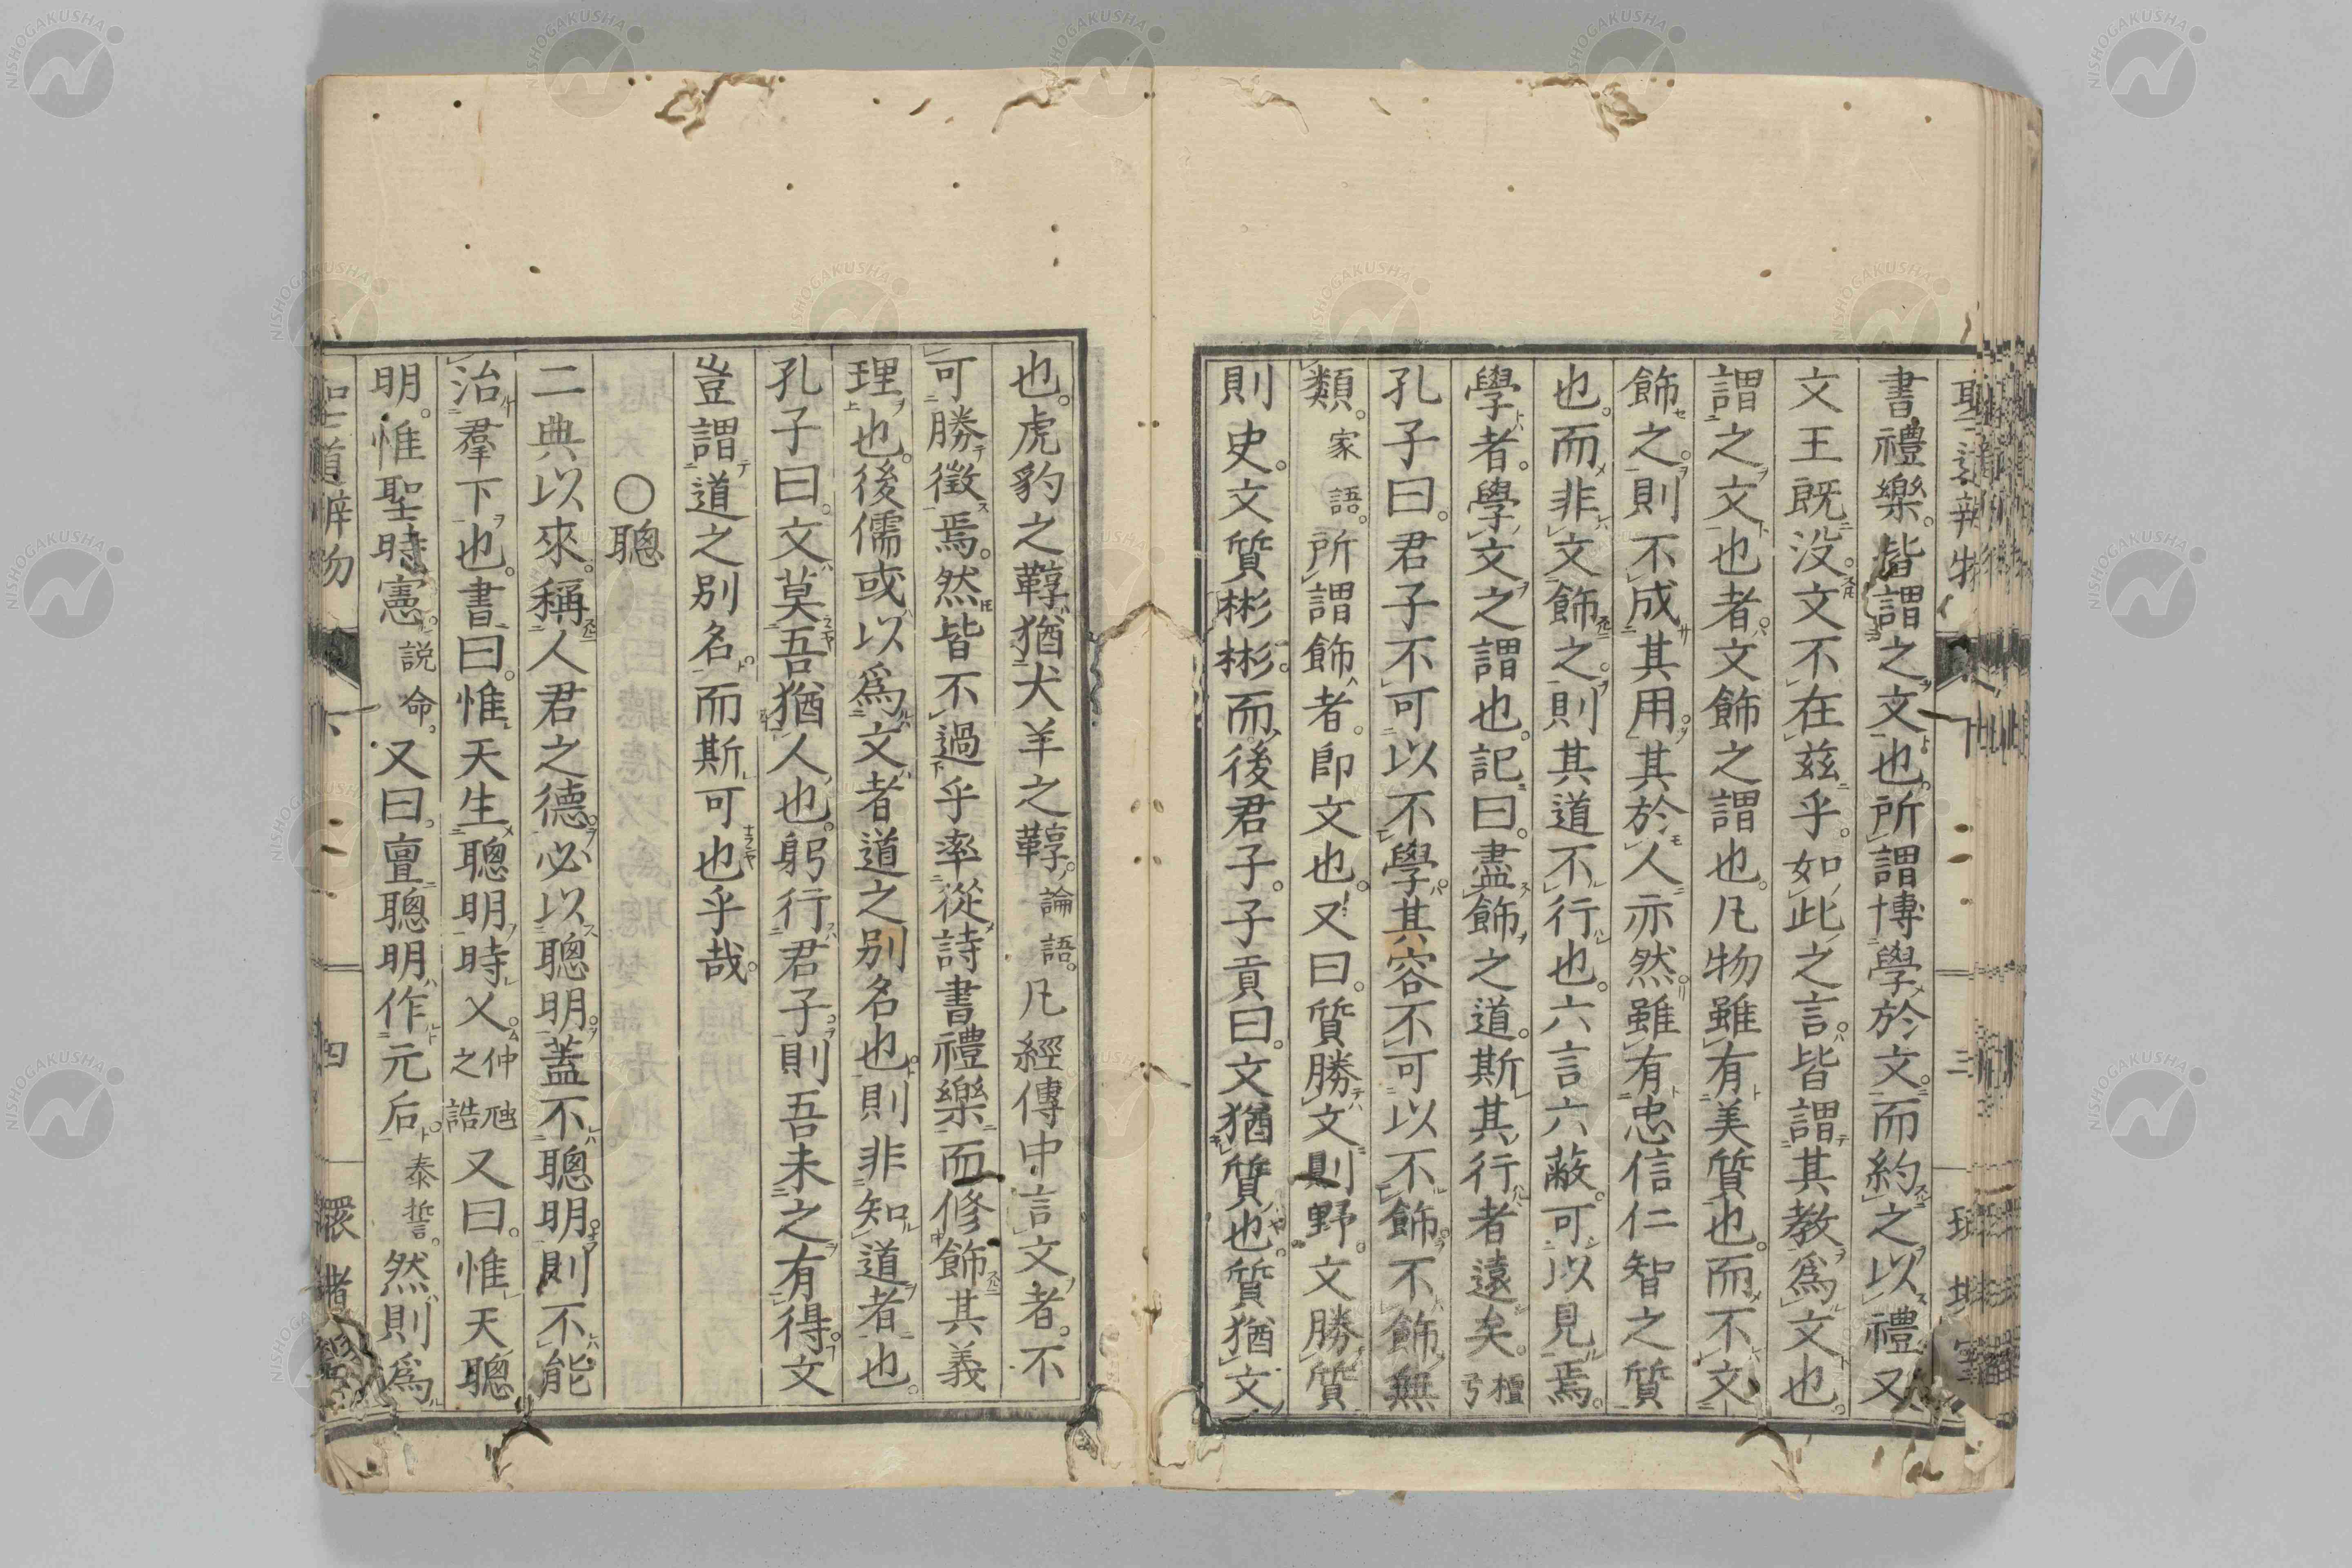 書禮樂。皆謂之文也。所謂博學於文。而約之以禮又
文王既没。文不在茲乎。如此之言。皆謂其教爲文也。
謂之文也者。文飾之謂也。凡物雖有美質也。而不文
飾之。則不成其用。其於人亦然。雖有忠信仁智之質
也。而非文飾之。則其道不行也。六言六蔽。可以見焉。
學者。學文之謂也。記曰。盡飾之道。斯其行者遠矣。檀弓
孔子曰。君子不可以不學。其容不可以不飾。不飾無
類。家語。所謂飾者。即文也。又曰。質勝文則野。文勝質
則史。文質彬彬。而後君子。子貢曰。文猶質也。質猶文
也。虎豹之鞟。猶犬羊之鞟。論語。凡經傳中言文者。不
可勝徵焉。然皆不過乎率從詩書禮樂。而修飾其義
理也。後儒或以爲文者道之別名也。則非知道者也。
孔子曰。文莫吾猶人也。躬行君子。則吾未之有得。文
豈謂道之別名。而斯可也乎哉。
○聰
二典以來。稱人君之德。必以聰明。蓋不聰明。則不能
治羣下也。書曰。惟天生聰明時乂。仲虺之誥又曰。惟天聰
明。惟聖時憲。説命。又曰。亶聰明作元后。泰誓。然則爲